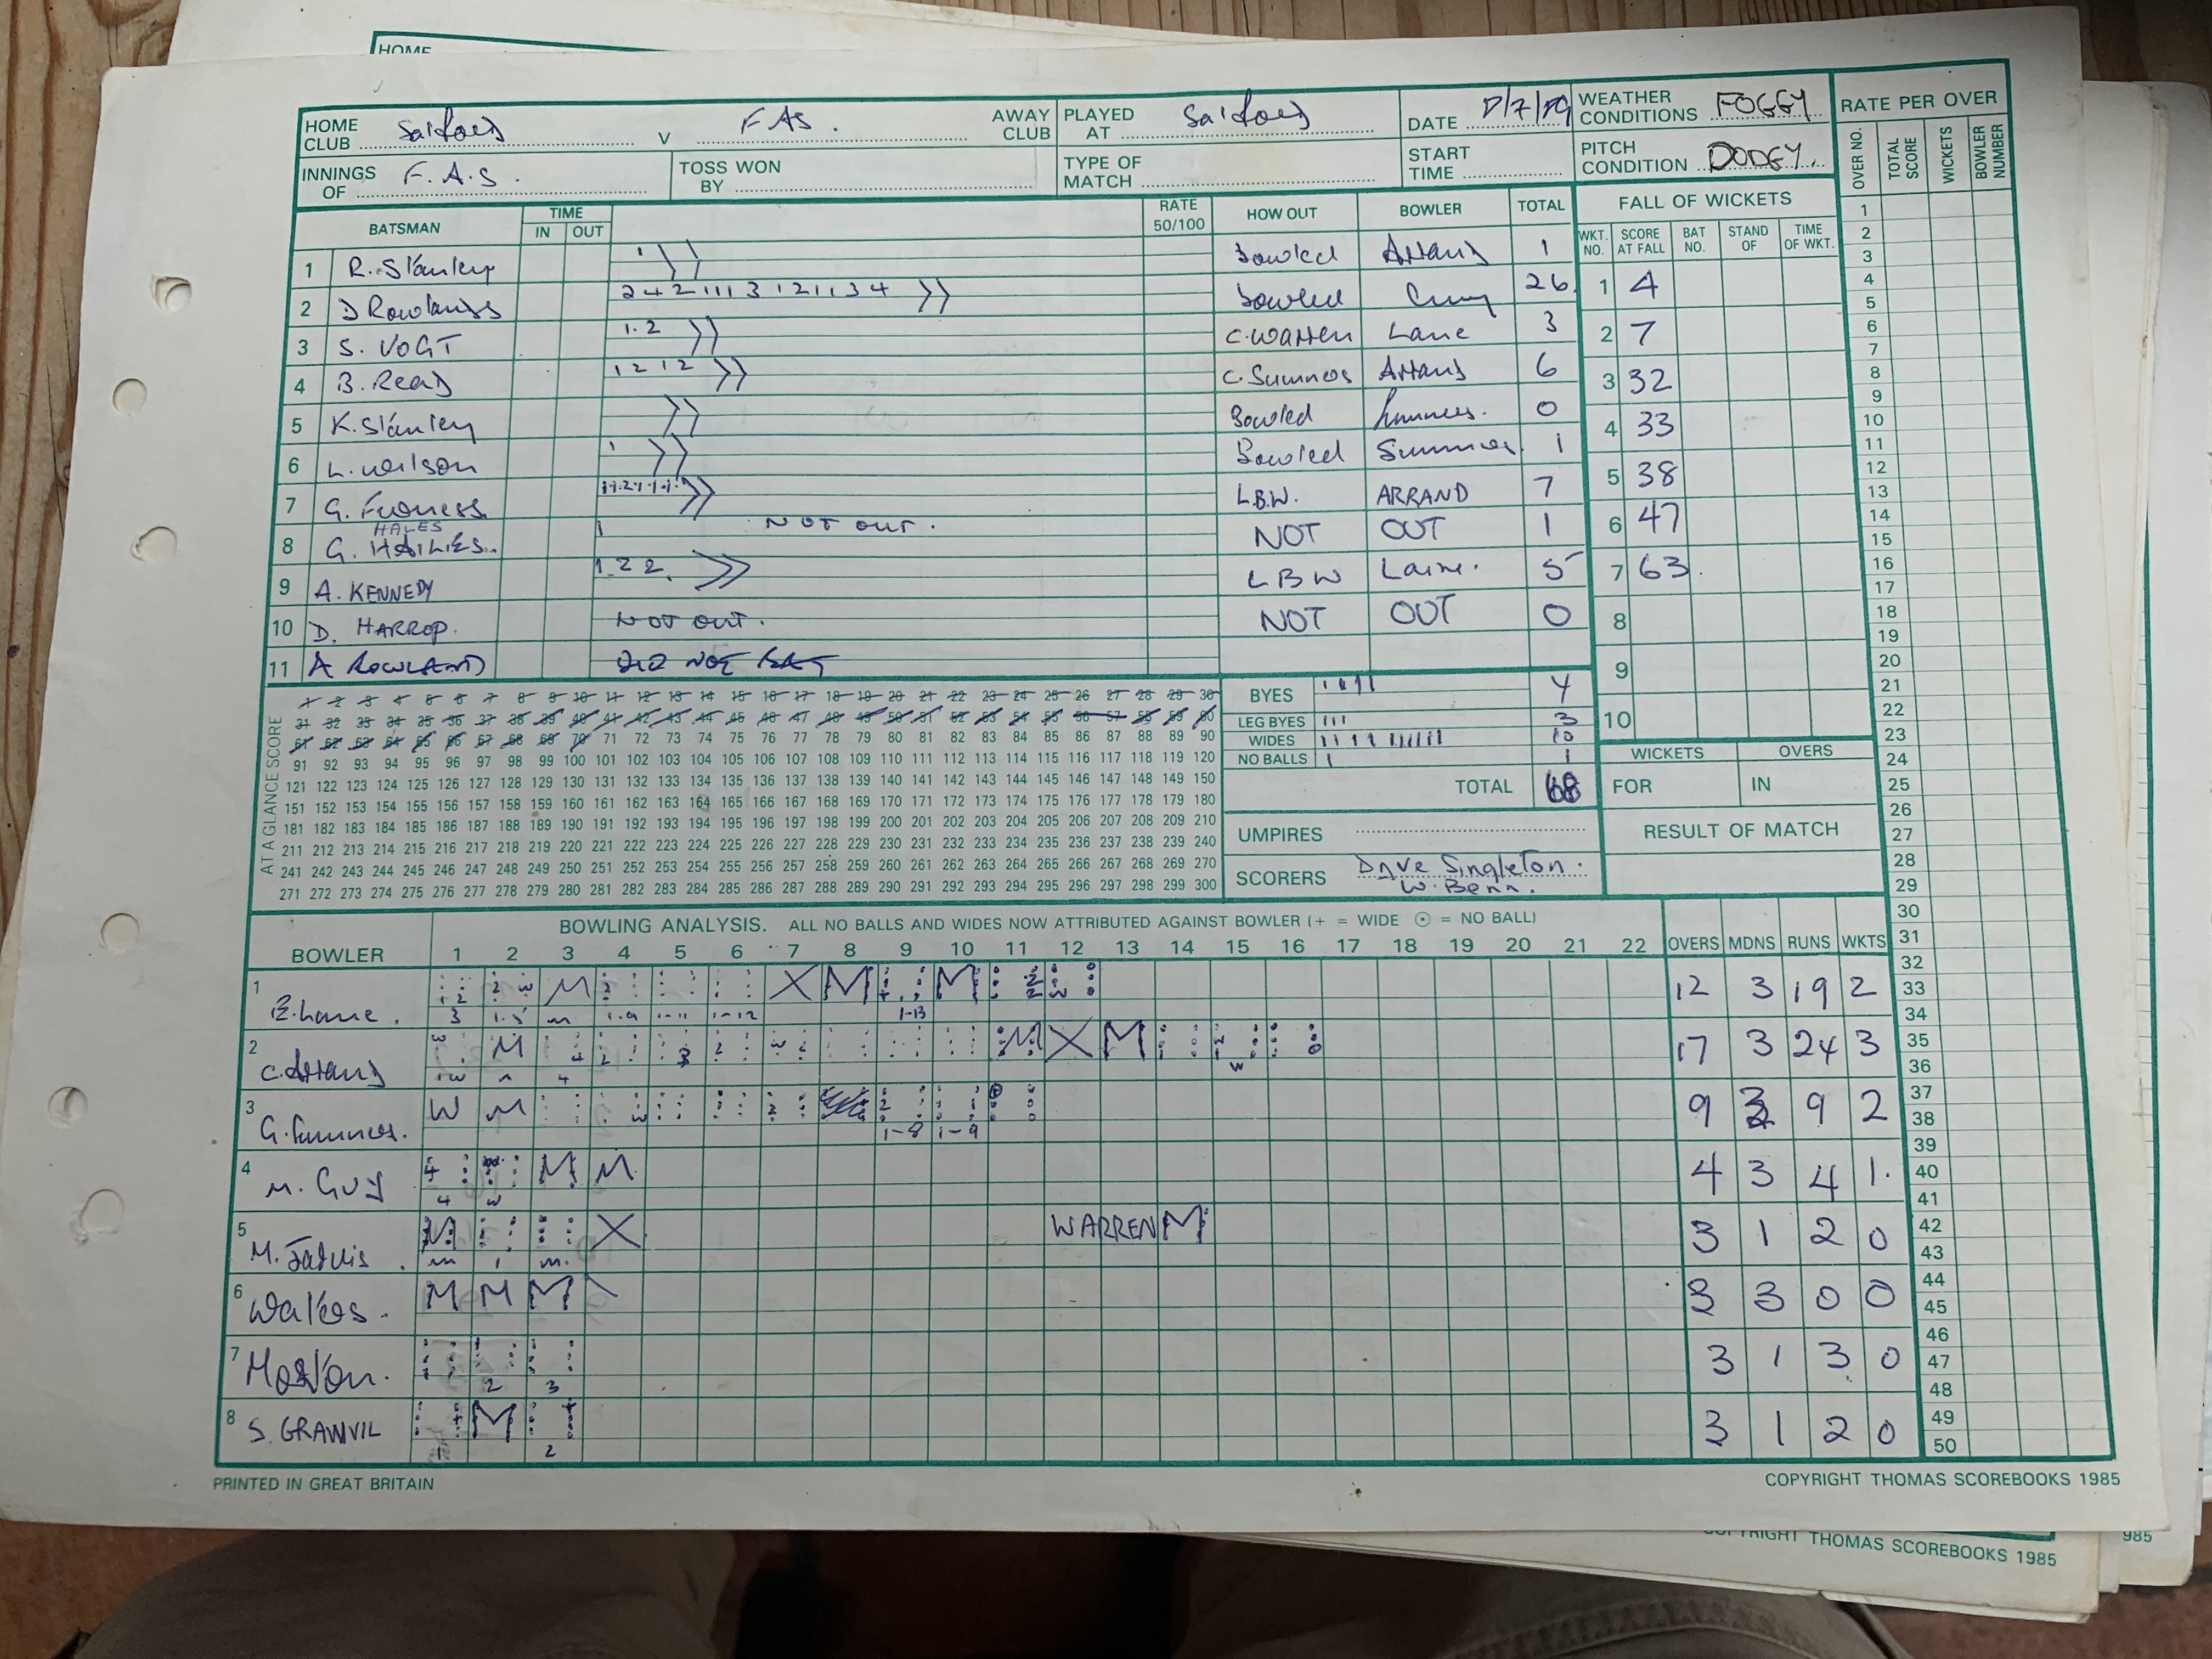 HOME
HOME CLUB Salford V F.A.S. AWAY CLUB
PLAYED AT Salford
DATE
WEATHER CONDITIONS FOGGY
RATE PER OVER
INNINGS OF F.A.S.
TOSS WON BY
TYPE OF MATCH
START TIME
PITCH CONDITION DODGY
OVER NO. TOTAL SCORE WICKETS BOWLER NUMBER
BATSMAN TIME IN OUT RATE 50/100 HOW OUT BOWLER TOTAL
FALL OF WICKETS
WKT. NO. SCORE AT FALL BAT NO. STAND OF TIME OF WKT.
1 R. Stanley 1 Bowled Arrand 1
2 D Rowlands 2 4 2 1 1 1 3 1 2 1 1 3 4 Bowled 26
3 S. VOGT 1.2 C. Warren Lane 3
4 B. Read 1 2 1 2 C. Sumner Arrand 6
5 K. Stanley Bowled Sumner. 0
6 L. Wilson 1 Bowled Sumner 1
7 G. Furness L.B.W. ARRAND 7
HALES
8 G. HAILES. 1 NOT OUT. NOT OUT 1
9 A. KENNEDY 1.2 2. LBW Laine. 5
10 D. HARROP. NOT OUT. NOT OUT 0
11 A ROWLAND DID NOT BAT
1 4
2 7
3 32
4 33
5 38
6 47
7 63
8
9
10
AT A GLANCE SCORE
1 2 3 4 5 6 7 8 9 10 11 12 13 14 15 16 17 18 19 20 21 22 23 24 25 26 27 28 29 30
31 32 33 34 35 36 37 38 39 40 41 42 43 44 45 46 47 48 49 50 51 52 53 54 55 56 57 58 59 60
61 62 63 64 65 66 67 68 69 70 71 72 73 74 75 76 77 78 79 80 81 82 83 84 85 86 87 88 89 90
91 92 93 94 95 96 97 98 99 100 101 102 103 104 105 106 107 108 109 110 111 112 113 114 115 116 117 118 119 120
121 122 123 124 125 126 127 128 129 130 131 132 133 134 135 136 137 138 139 140 141 142 143 144 145 146 147 148 149 150
151 152 153 154 155 156 157 158 159 160 161 162 163 164 165 166 167 168 169 170 171 172 173 174 175 176 177 178 179 180
181 182 183 184 185 186 187 188 189 190 191 192 193 194 195 196 197 198 199 200 201 202 203 204 205 206 207 208 209 210
211 212 213 214 215 216 217 218 219 220 221 222 223 224 225 226 227 228 229 230 231 232 233 234 235 236 237 238 239 240
241 242 243 244 245 246 247 248 249 250 251 252 253 254 255 256 257 258 259 260 261 262 263 264 265 266 267 268 269 270
271 272 273 274 275 276 277 278 279 280 281 282 283 284 285 286 287 288 289 290 291 292 293 294 295 296 297 298 299 300
BYES 4
LEG BYES 3
WIDES 10
NO BALLS 1
TOTAL 68
WICKETS OVERS
FOR IN
UMPIRES
RESULT OF MATCH
SCORERS Dave Singleton.
W. Benn.
BOWLING ANALYSIS. ALL NO BALLS AND WIDES NOW ATTRIBUTED AGAINST BOWLER (+ = WIDE ⊙ = NO BALL)
BOWLER 1 2 3 4 5 6 7 8 9 10 11 12 13 14 15 16 17 18 19 20 21 22 OVERS MDNS RUNS WKTS
1 E. Lane. 12 3 19 2
2 C. Arrand 17 3 24 3
3 G. Sumner. 9 3 9 2
4 M. GUY 4 3 4 1.
5 M. Jarvis. WARREN M 3 1 2 0
6 Walker. M M M 3 3 0 0
7 Morton. 3 1 3 0
8 S. GRANVIL 3 1 2 0
1
2
3
4
5
6
7
8
9
10
11
12
13
14
15
16
17
18
19
20
21
22
23
24
25
26
27
28
29
30
31
32
33
34
35
36
37
38
39
40
41
42
43
44
45
46
47
48
49
50
PRINTED IN GREAT BRITAIN
COPYRIGHT THOMAS SCOREBOOKS 1985
COPYRIGHT THOMAS SCOREBOOKS 1985
985